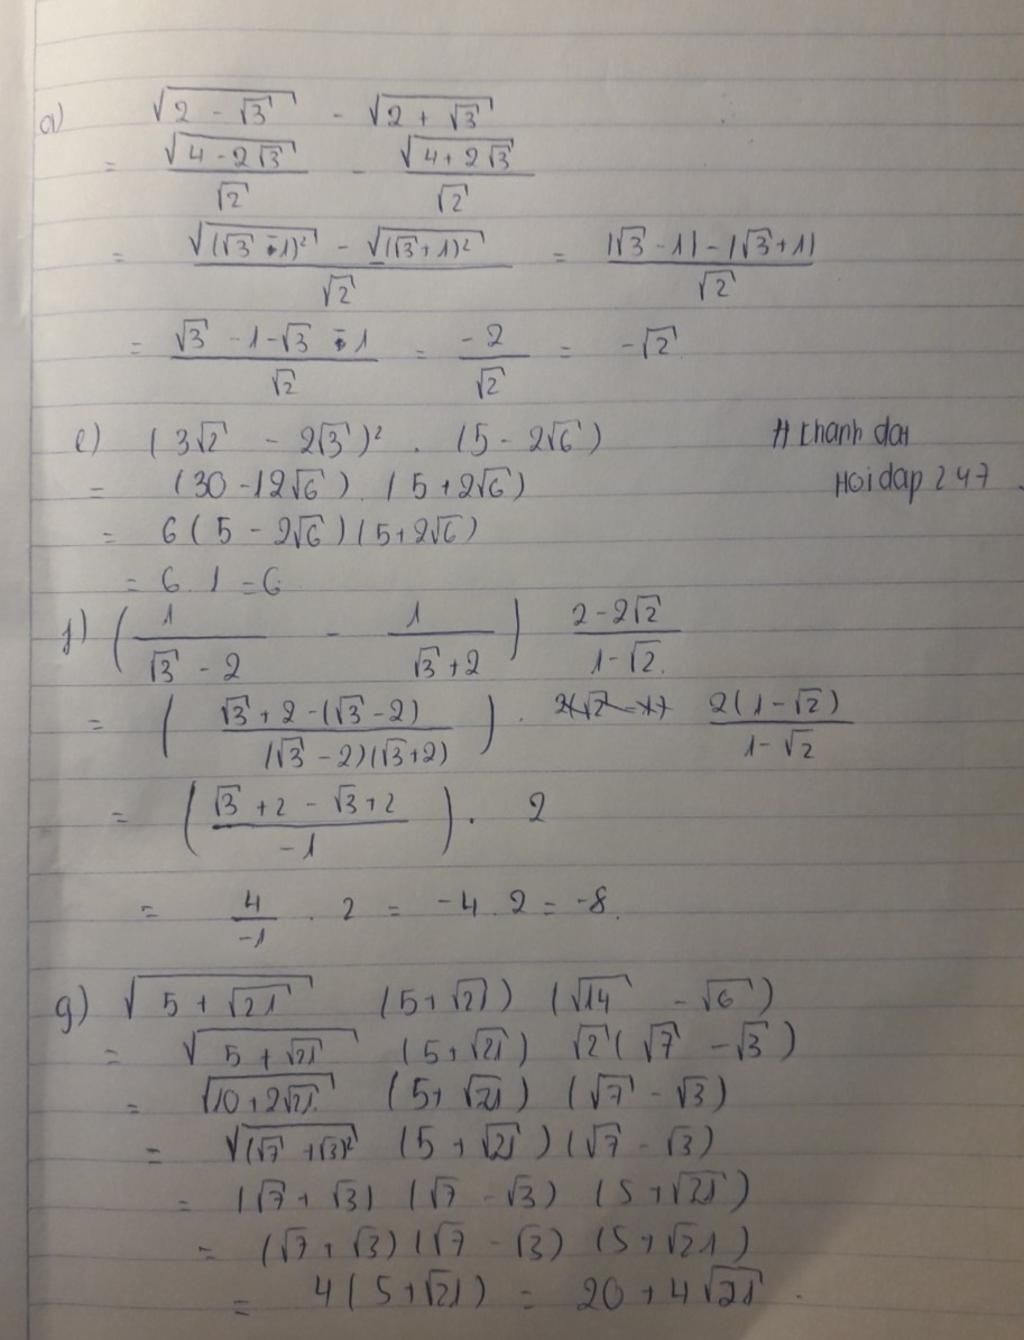 a) √(2 - √3) - √(2 + √3)
= √(4 - 2√3)/√2 - √(4 + 2√3)/√2
= (√((√3 - 1)²) - √((√3 + 1)²))/√2 = (|√3 - 1| - |√3 + 1|)/√2
= (√3 - 1 - √3 - 1)/√2 = -2/√2 = -√2
e) (3√2 - 2√3)² . (5 - 2√6)
# thanh dai
= (30 - 12√6) . (5 + 2√6)
Hoidap 247
= 6(5 - 2√6)(5 + 2√6)
= 6 . 1 = 6
f) (1/(√3 - 2) - 1/(√3 + 2)) (2 - 2√2)/(1 - √2)
= ((√3 + 2 - (√3 - 2))/((√3 - 2)(√3 + 2))) . 2(1 - √2)/(1 - √2)
= ((√3 + 2 - √3 + 2)/-1) . 2
= 4/-1 . 2 = -4 . 2 = -8.
g) √(5 + √21) (5 + √21) (√14 - √6)
= √(5 + √21) (5 + √21) √2(√7 - √3)
= √(10 + 2√21) (5 + √21) (√7 - √3)
= √((√7 + √3)²) (5 + √21)(√7 - √3)
= |√7 + √3| (√7 - √3) (5 + √21)
= (√7 + √3)(√7 - √3) (5 + √21)
= 4(5 + √21) = 20 + 4√21.